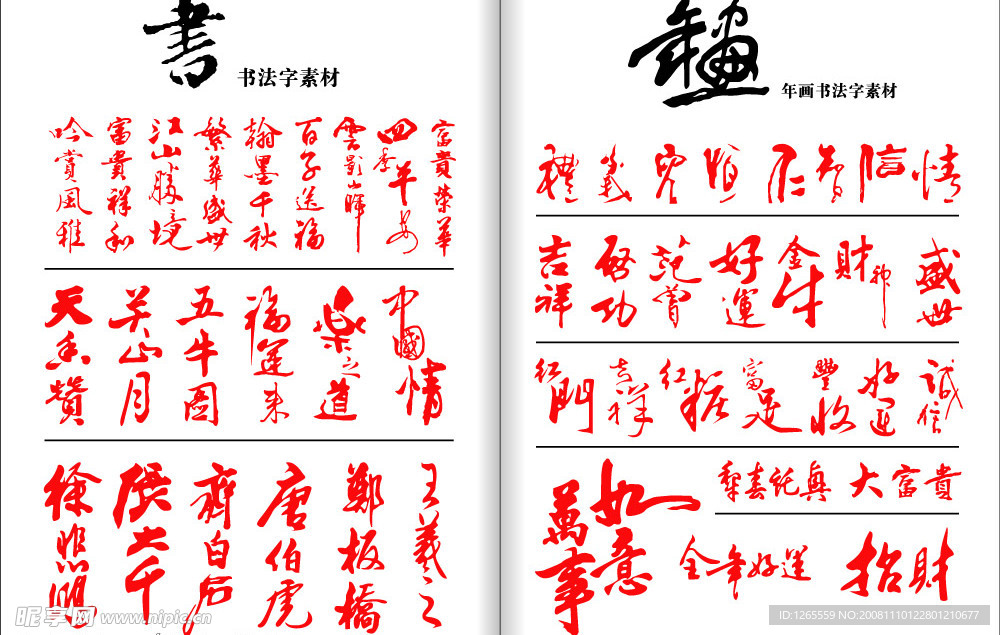 書
书法字素材
富貴榮華
四季平安
雲影山暉
百子送福
翰墨千秋
繁華盛世
江山勝境
富貴祥和
吟賞風雅
中國情
樂之道
福運来
五牛图
关山月
天香贊
王羲之
鄭板橋
唐伯虎
齊白石
張大千
徐悲鸿
年畫
年画书法字素材
情
信
智
仁
禮
盛世
財神
金牛
好運
啓功
吉祥
誠信
好运
豐收
富足
红
吉祥
红門
大富貴
萬事如意
全年好運
招財
昵享网 www.nipic.cn
ID:1265559 NO:20081110122801210677